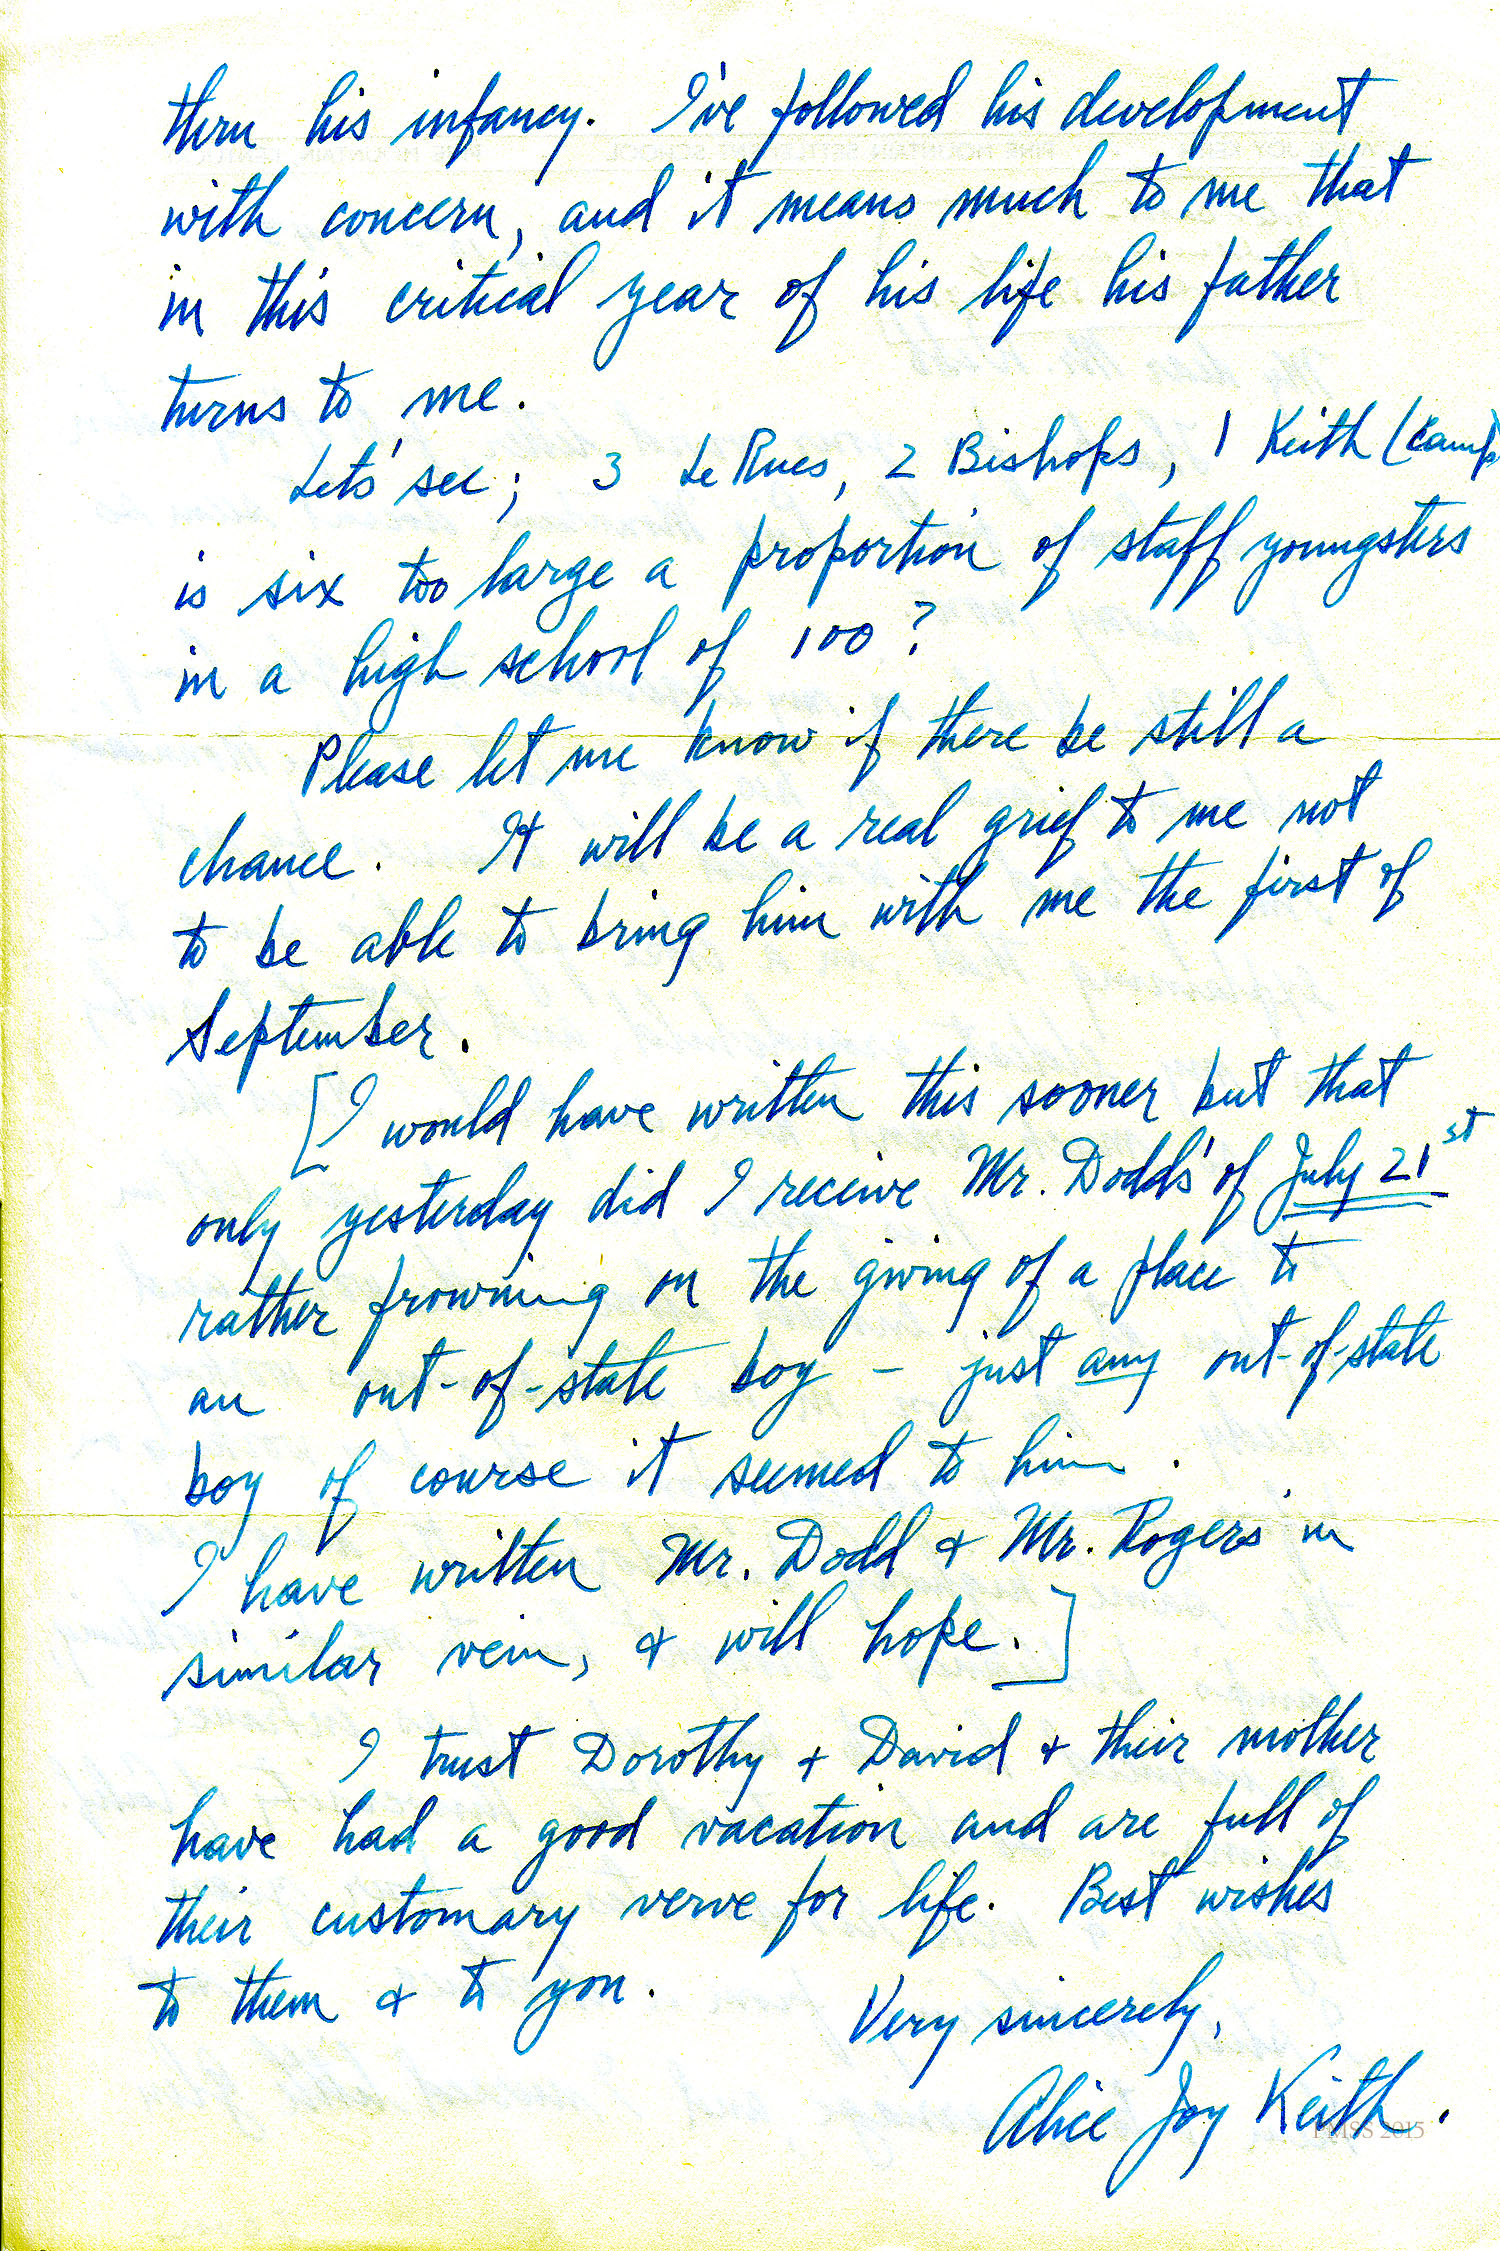 thru his infancy. I've followed his development
with concern, and it means much to me that
in this critical year of his life his father
turns to me.
Let's see; 3 Le Rues, 2 Bishops, 1 Keith (Camp)
is six too large a proportion of staff youngsters
in a high school of 100?
Please let me know if there be still a
chance. It will be a real grief to me not
to be able to bring him with me the first of
September.
[I would have written this sooner but that
only yesterday did I receive Mr. Dodd's of July 21st
rather frowning on the giving of a place to
an out-of-state boy – just any out-of-state
boy of course it seemed to him.
I have written Mr. Dodd & Mr. Rogers in
similar vein, & will hope.]
I trust Dorothy & David & their mother
have had a good vacation and are full of
their customary verve for life. Best wishes
to them & to you.
Very sincerely,
Alice Joy Keith.
PMSS 2015